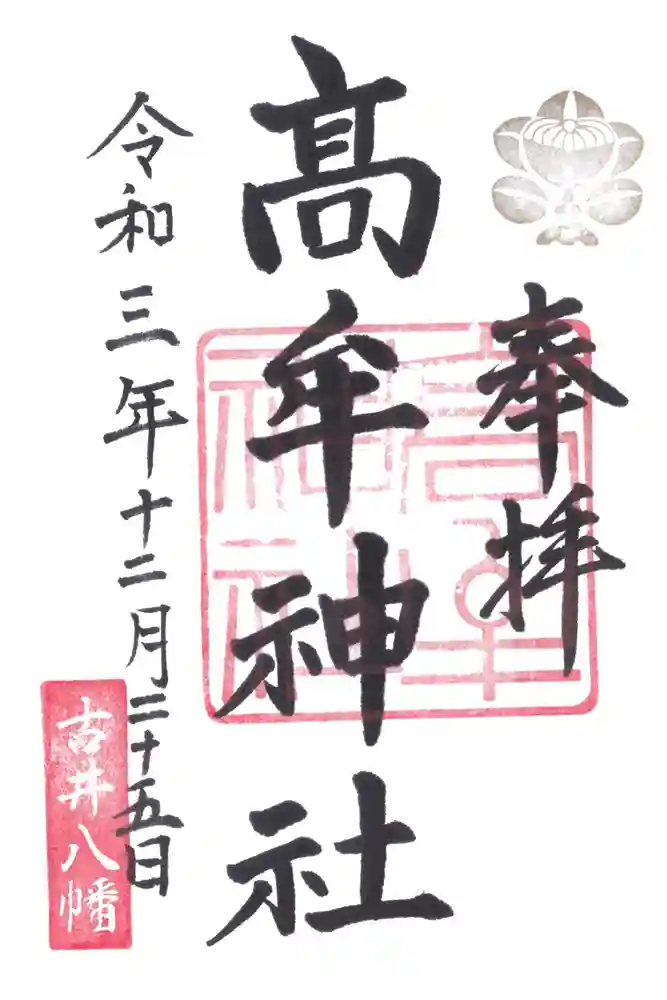 奉拝
高牟神社
令和三年十二月二十五日
古井八幡
高牟神社